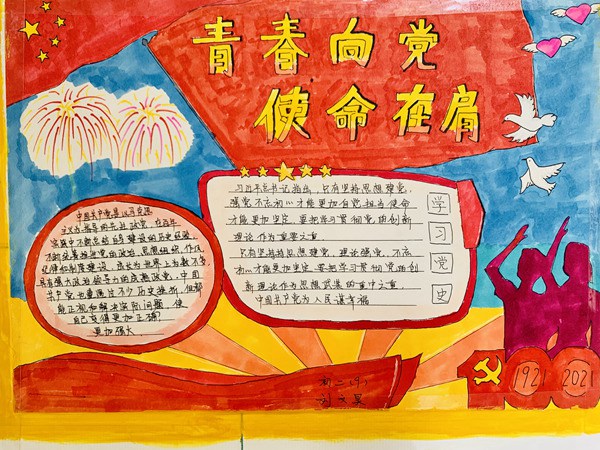 青春向党
使命在肩
中国共产党是以马克思
主义为指导的先进政党，在百年
实践中不断总结自身建设的历史经验，
不断完善推进党的政治、思想、组织、作风、
纪律和制度建设，成长为世界上为数不多
具有强大政治领导力的成熟政党，中国
共产党也遭遇过不少历史挫折，但都
能正视和解决问题，使
自己变得更加正确
更加强大
习近平总书记指出，只有坚持思想建党，
强党，不忘初心才能更加自觉担当使命
才能更加坚定，要把学习贯彻党的创新
理论作为重要文章
只有坚持思想建党，理论强党，不忘
初心才能更加坚定，要把学习贯彻党的创
新理论作为思想武装的重中之重
中国共产党为人民谋幸福
学
习
党
史
初二(4)
刘文昊
1921 2021